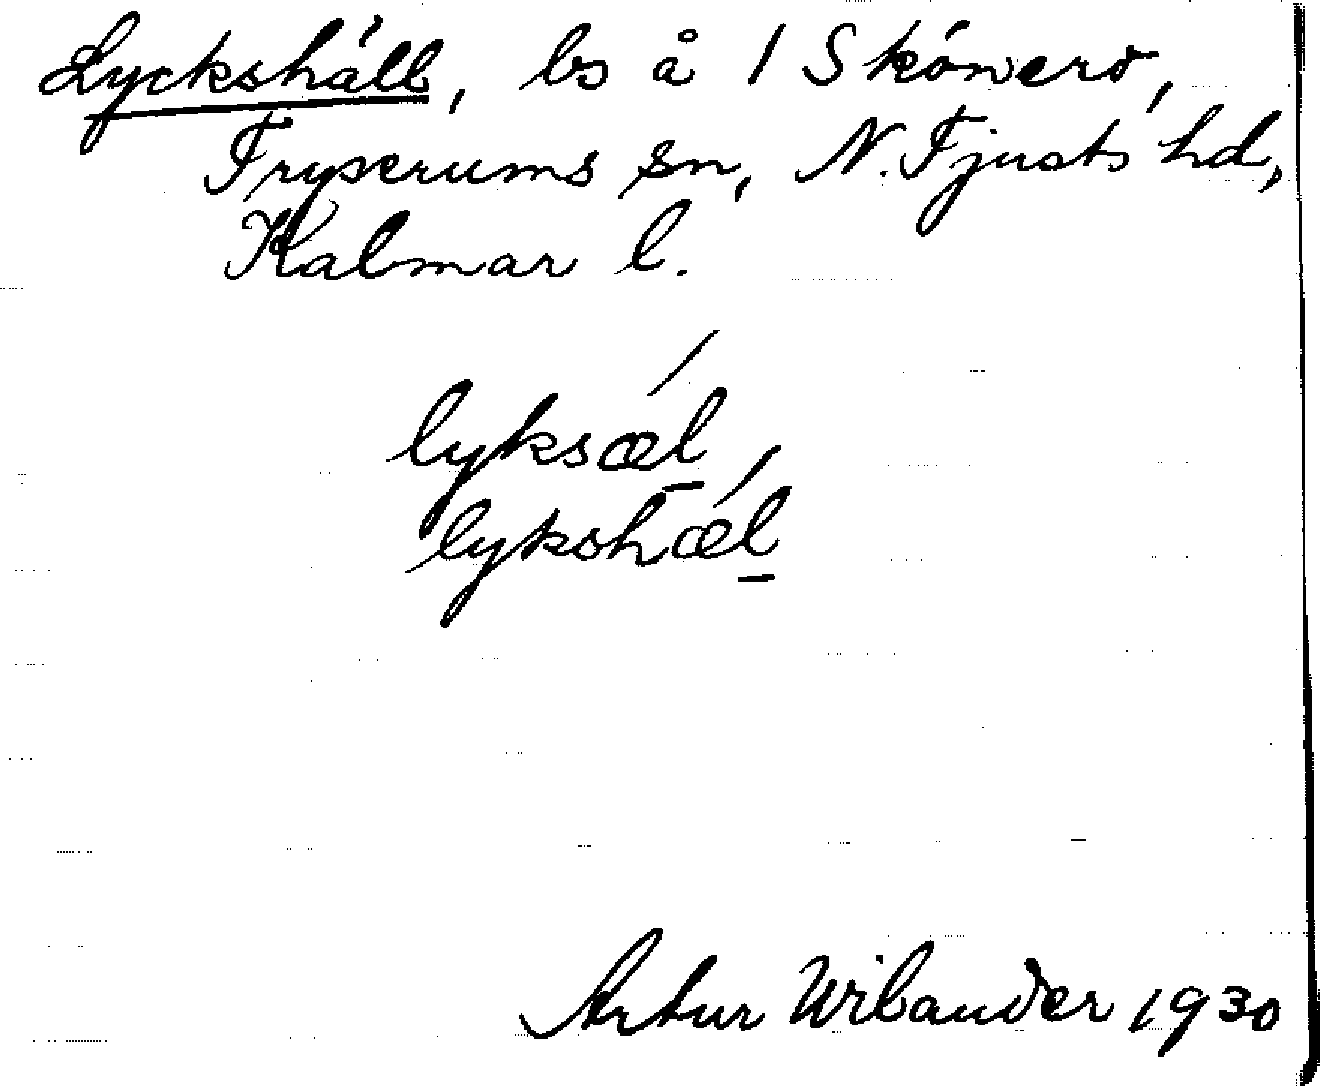 Lyckshäll, ls å 1 Skönerö,
Tryserums sn, N. Tjusts hd,
Kalmar l.
lyksæl
lykshæl
Artur Wilander 1930